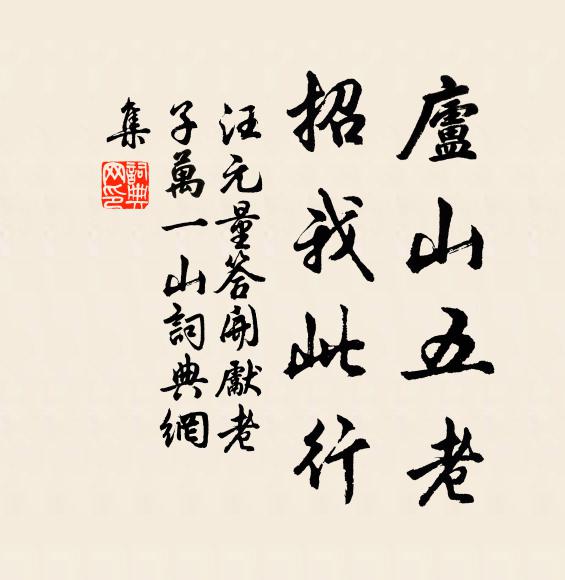 廬山五老
招我此行
汪元量答開獻老
子萬一山詞典網
集
詞典網印